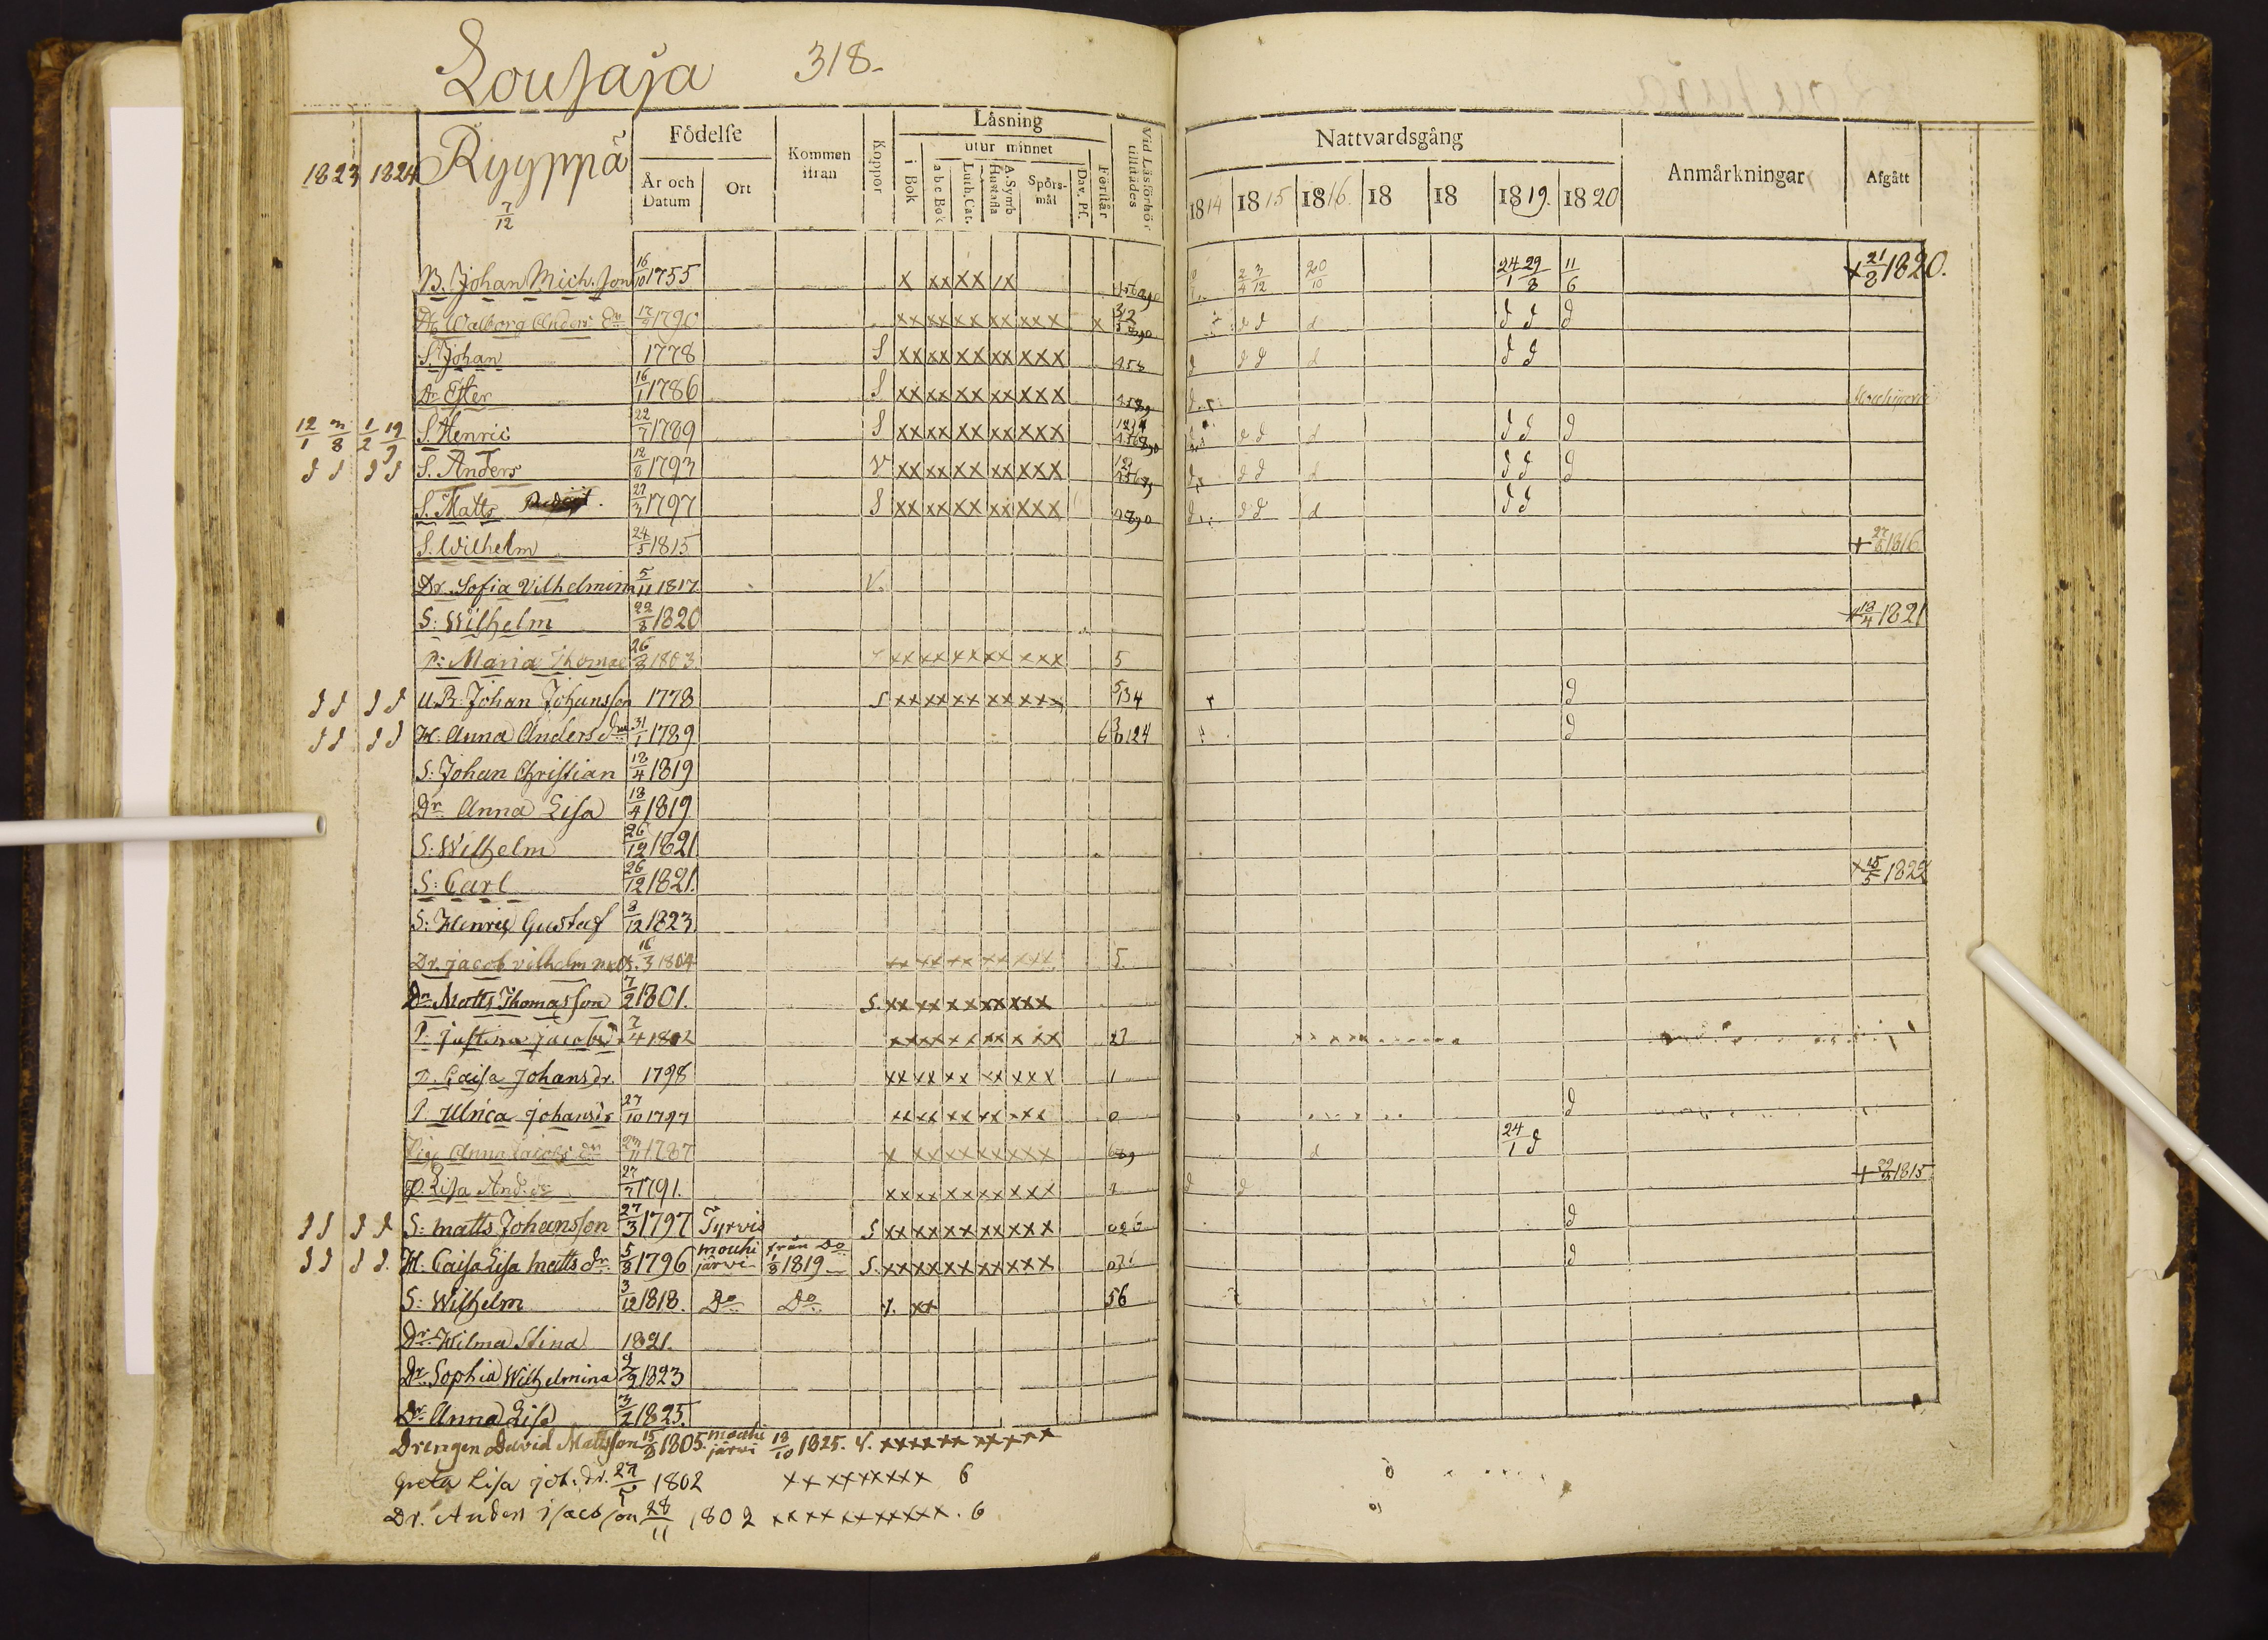 Lousaja 318.
1823 1824 Rygppä 7/12
Födelse
År och Datum
Ort
Kommen ifran
Koppor
Läsning
i Bok
utur minnet
a b c Bok
Luth. Cat.
A. Symb Hustafla
Spörs-mål
Dav. Ps.
Förstår
Vid Läsförhör tilltädes
Nattvardsgång
1814 1815 1816. 18 18 1819. 1820
Anmärkningar
Afgått
B. Johan Mich. Son 16/10 1755 x xx xx 2/4 3/12 20/10 24/1 29/8 11/6 + 21/8 1820.
Walborg Anders Dr 1790 xx xx xx xx xxx x d d d d d d
S. Johan 1778 S xx xx xx xx xxx d d d d d d
Dr Ester 16/1 1786 S xx xx xx xx xxx
12/1 1/2 19/9 S. Henric 22/7 1789 S xx xx xx xx xxx d d d d d d
d d d d S. Anders 12/8 1793 V xx xx xx xx xxx d d d d d d
S. Matts 27/3 1797 S xx xx xx xx xxx d d d d d
S. Wilhelm 24/5 1815 + 1816
Dr. Sofia Vilhelmina 5/11 1817 V.
S: Wilhelm 22/8 1820 + 18/4 1821
P: Maria Thomae 26/8 1803 xx xx xx xx xxx 5
d d d d U.B: Johan Johansson 1778 S xx xx xx xx xxx d
d d d d H. Anna Anders dr 31/1 1789 d
S: Johan Christian 18/4 1819
Dr Anna Lisa 18/4 1819
S: Wilhelm 26/12 1821
S: Carl 26/12 1821. + 15/5 1822
S: Henric Gustaf 8/12 1823.
Dr. jacob vilhelm 16/3 1804 xx xx xx xx xxx 5.
Dr Matts Thomasson 7/2 1801. S. xx xx xx xx xxx
P. justina jacobsdr 7/4 1802 xx xx xx xx xxx
P. Caisa Johansdr. 1798 xx xx xx xx xxx 1
P. Ulrica johansdr 27/10 1797 xx xx xx xx xxx 0 d
Pig Anna Jacobs dr 1787 x xx xx xx xxx d 24/1 d
P. Lisa And. dr 27/7 1791. xx xx xx xx xxx d d + 1815
d d d d S: matts Johansson 27/3 1797 Tyrvis S xx xx xx xx xxx d
d d d d. H. Caisa Lisa matts dr 5/8 1796 mouhi järvi från Do 1/8 1819 S. xx xx xx xx xxx d
S: Wilhelm 3/12 1818. Do Do xx 56
Dr Wilma Stina 1821.
Dr. Sophia Wilhelmina 9/9 1823
Dr Anna Lisa 3/2 1825.
Drengen David Mattsson 15/8 1805. mouhi järvi 13/10 1825. v. xxxx xx xxxxx
Greta Lisa joh: dr. 27/5 1802 xxxxxxxxx 6
Dr. Anders isacsson 28/11 1802 xxxxxxxxxx. 6